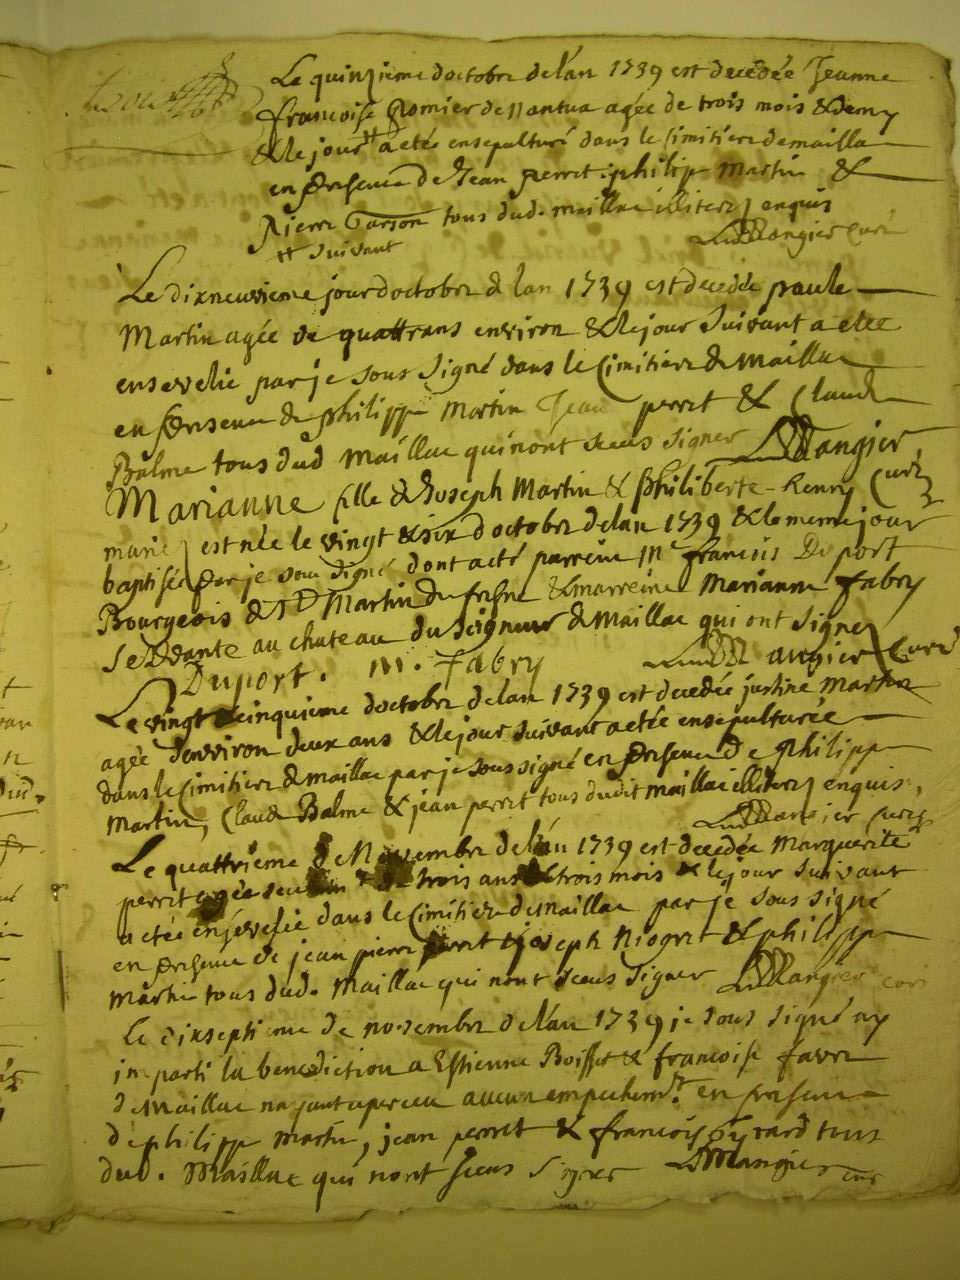 Le quinzieme doctobre de lan 1739 est decedée Jeanne
francoise Romier de Nantua agée de trois mois & demy
& le jour # a eteé ensepulturé dans le Cimitiere de mailla
en presence de Jean perret philipp Martin &
Pierre tous dud. maillac illiterz enquis
# suivant Mangier Curé
Le dixneuvieme jour doctobre de lan 1739 est decedée paule
Martin agée de quattrans environ & le jour suivant a eteé
ensevelie par je sous signé dans le Cimitiere de Maillac
en presence de philipp Martin Jean perret & Claude
Balme tous dud Maillac qui nont sceus signer Mangier
Marianne fille de Joseph Martin & philiberte Henry Curé
mariez est née le vingt & six doctobre de lan 1739 & le meme jour
baptisée par je sous signé dont a eté parrein Mr francois Duport
Bourgeois de St Martin du fresne & marreine Marianne fabry
residante au chateau du seigneur de Maillac qui ont signez
Duport. M. fabry Mangier Curé
Le vingt & cinquieme doctobre de lan 1739 est decedée justine Martin
agée denviron deux ans & le jour suivant a eteé ensepulturée
dans le Cimitiere de maillac par je sous signé en presence de philipp
Martin, Claude Balme & jean perret tous dudit maillac illiterz enquis,
Mangier Curé
Le quattrieme de Novembre de lan 1739 est decedée Marguerite
perret agée de trois ans & trois mois & le jour suivant
a eteé ensevelie dans le Cimitiere de Maillac par je sous signé
en presence de jean pierre perret joseph Niogret & philipp
Martin tous dud. Maillac qui nont sceus signer Mangier curé
Le dixseptieme de novembre de lan 1739 je sous signé ay
imparti la benediction a Estienne Boisset & francoise favre
de Maillac nayant aperceu aucun empechemt. en presence
de philipp Martin, jean perret & francois Gyrard tous
dud. Maillac qui nont sceus signer Mangier curé